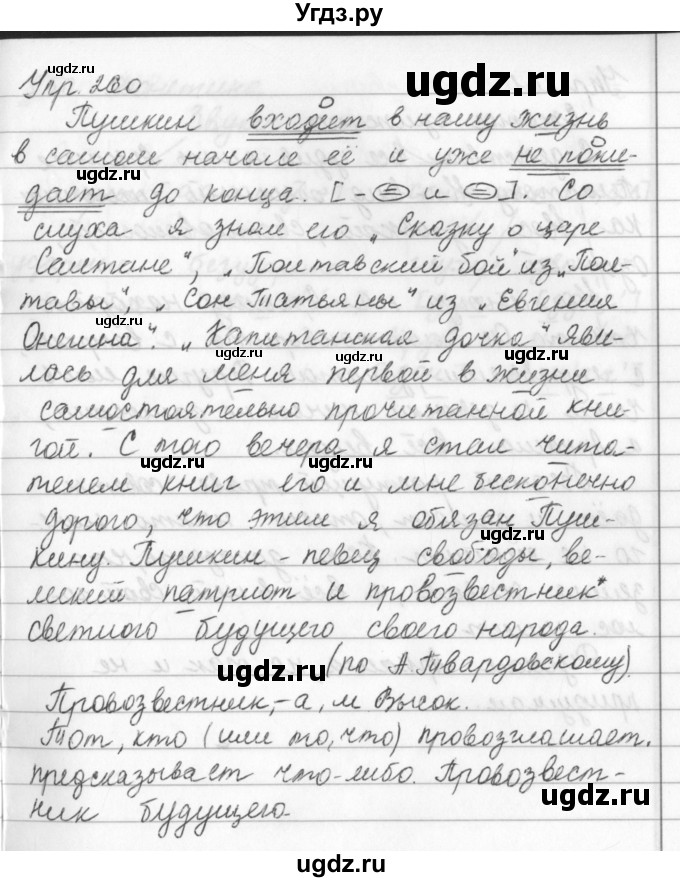 Угдз.ру
ugdz.ru
Упр. 260
ugdz.ru
Пушкин входит в нашу жизнь
ugdz.ru
в самом начале её и уже не поки-
дает до конца. [ - = и = ]. Со
слуха я знал его „Сказку о царе
Салтане", „Полтавский бой" из „Пол-
тавы", „Сон Татьяны" из „Евгения
ugdz.ru
Онегина". „Капитанская дочка" яви-
ugdz.ru
лась для меня первой в жизни
самостоятельно прочитанной кни-
гой. С того вечера я стал чита-
ugdz.ru ugdz.ru
телем книг его и мне бесконечно
дорого, что этим я обязан Пуш-
кину. Пушкин - певец свободы, ве-
ликий патриот и провозвестник*
светлого будущего своего народа.
ugdz.ru ugdz.ru
(по А.Твардовскому).
Провозвестник,-а, м Высок.
Тот, кто (или то, что) провозглашает.
ugdz.ru
предсказывает что-либо. Провозвест-
ugdz.ru
ник будущего.
ugdz.ru